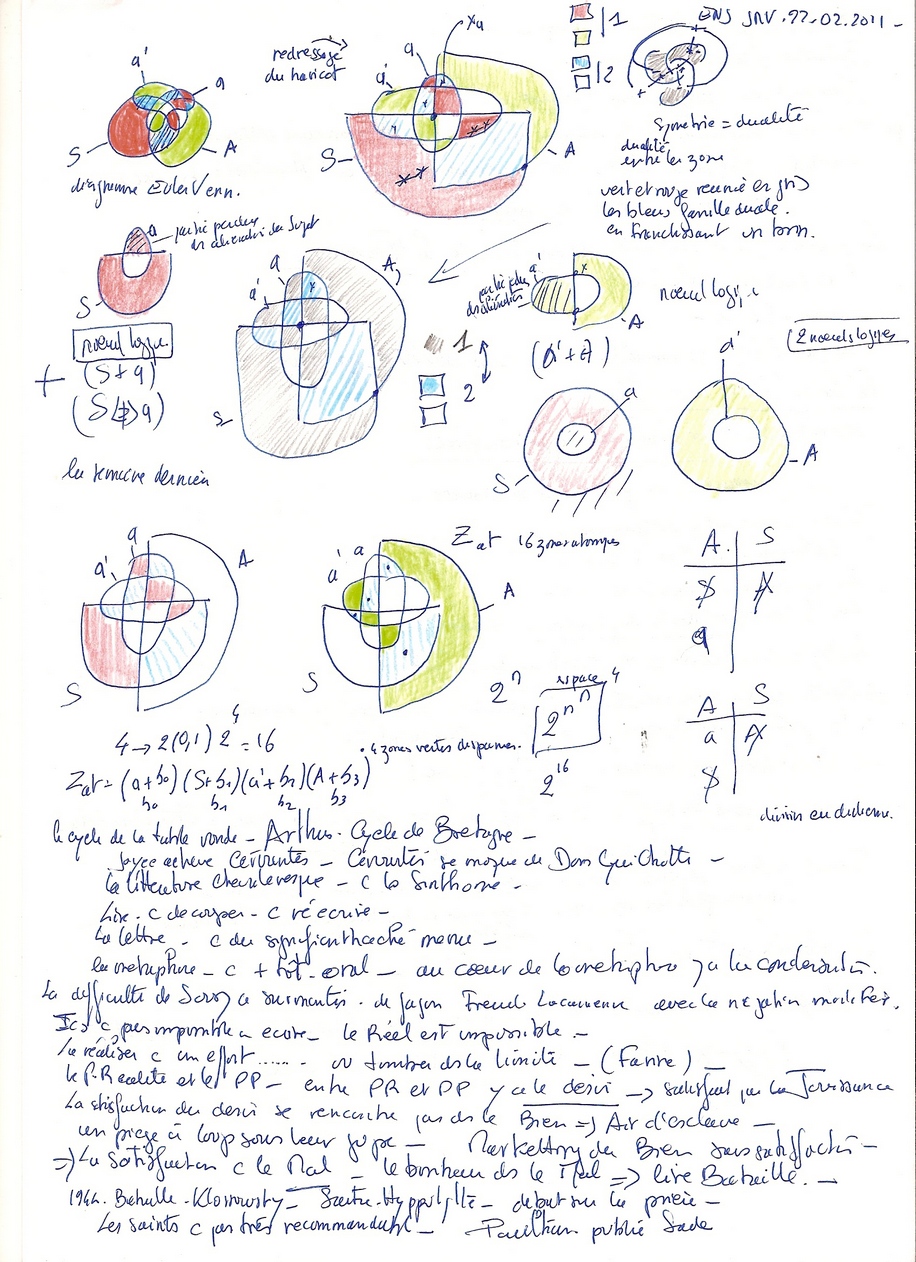 ENS JRV. 22.02.2011 -
a'
a
S
A
diagramme Euler Venn.
redressage
du haricot
xa
a
a'
S
A
1
2
Symétrie = dualité
dualité
entre les zone
vert et rouge reunié en gris
les bleus famille duale.
en franchissant un bord.
a
S
noeud logique
+ (S + a)
a
a'
A
S
1
2
a'
x
A
noeud logi
(a' + A)
2 noeuds logiques
a
S
a'
A
la semaine dernière
a
a'
A
S
a
a'
A
S
Z at 16 zones atomiques
A. S
a
A S
a
4 → 2(0,1) 2⁴ = 16
. 4 zones vertes disparues.
2ⁿ
espace 4
2ⁿⁿ
2¹⁶
Zat = (a+b0) (S+b1) (a'+b2) (A+b3)
b0 b1 b2 b3
le cycle de la table ronde - Arthus. Cycle de Bretagne -
Joyce achève Cervantes - Cervantes se moque de Don Quichotte -
la littérature chevaleresque - c le Sinthome -
Lire - c decouper - c réécrire -
La lettre - c du signifiant haché menu -
la métaphore - c + tôt - oral - au coeur de la métaphore y a la condensation.
La difficulté de Sery a surmonter - de façon Freudo Lacanienne avec la négation modifiée.
Ici c pas impossible a ecrire - le Réel est impossible -
le réaliser c un effort ...... ou tomber ds la limite - (Faure) -
le P. Realité et le PP - entre PR et PP y a le désir → satisfait par la Jouissance
La satisfaction du desir se rencontre pas ds le Bien ⇒ Air d'esclave -
un piege à loup sous leur jupe - Marketting du Bien sans satisfaction -
⇒ La Satisfaction c le Mal - le bonheur ds le Mal ⇒ lire Bataille. -
1944. Bataille - Klossowsky - Sartre - Hyppolitte - debat sur le péché -
Les saints c pas très recommandable - Paulhan publié Sade